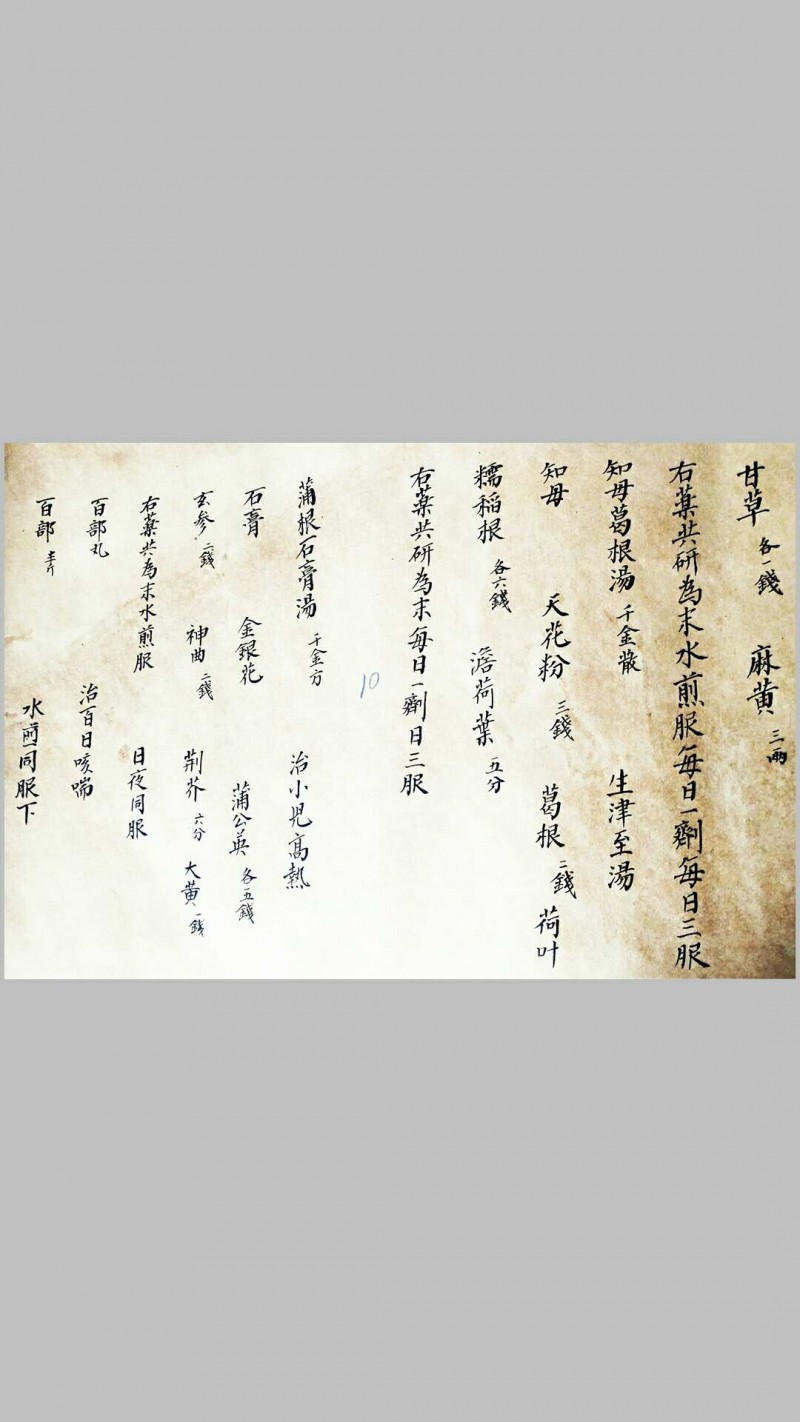 甘草 各一錢 麻黄 三兩
右藥共研為末水煎服每日一劑每日三服
知母葛根湯 千金散 生津至湯
知母 天花粉 三錢 葛根 二錢 荷叶
糯稻根 各六錢 澹荷葉 五分
右藥共研為末每日一劑日三服
10
蒲根石膏湯 千金方 治小児高熱
石膏 金銀花 蒲公英 各五錢
玄参 二錢 神曲 二錢 荆芥 六分 大黄 一錢
右藥共為末水煎服 日夜同服
百部丸 治百日咳喘
百部 水煎同服下